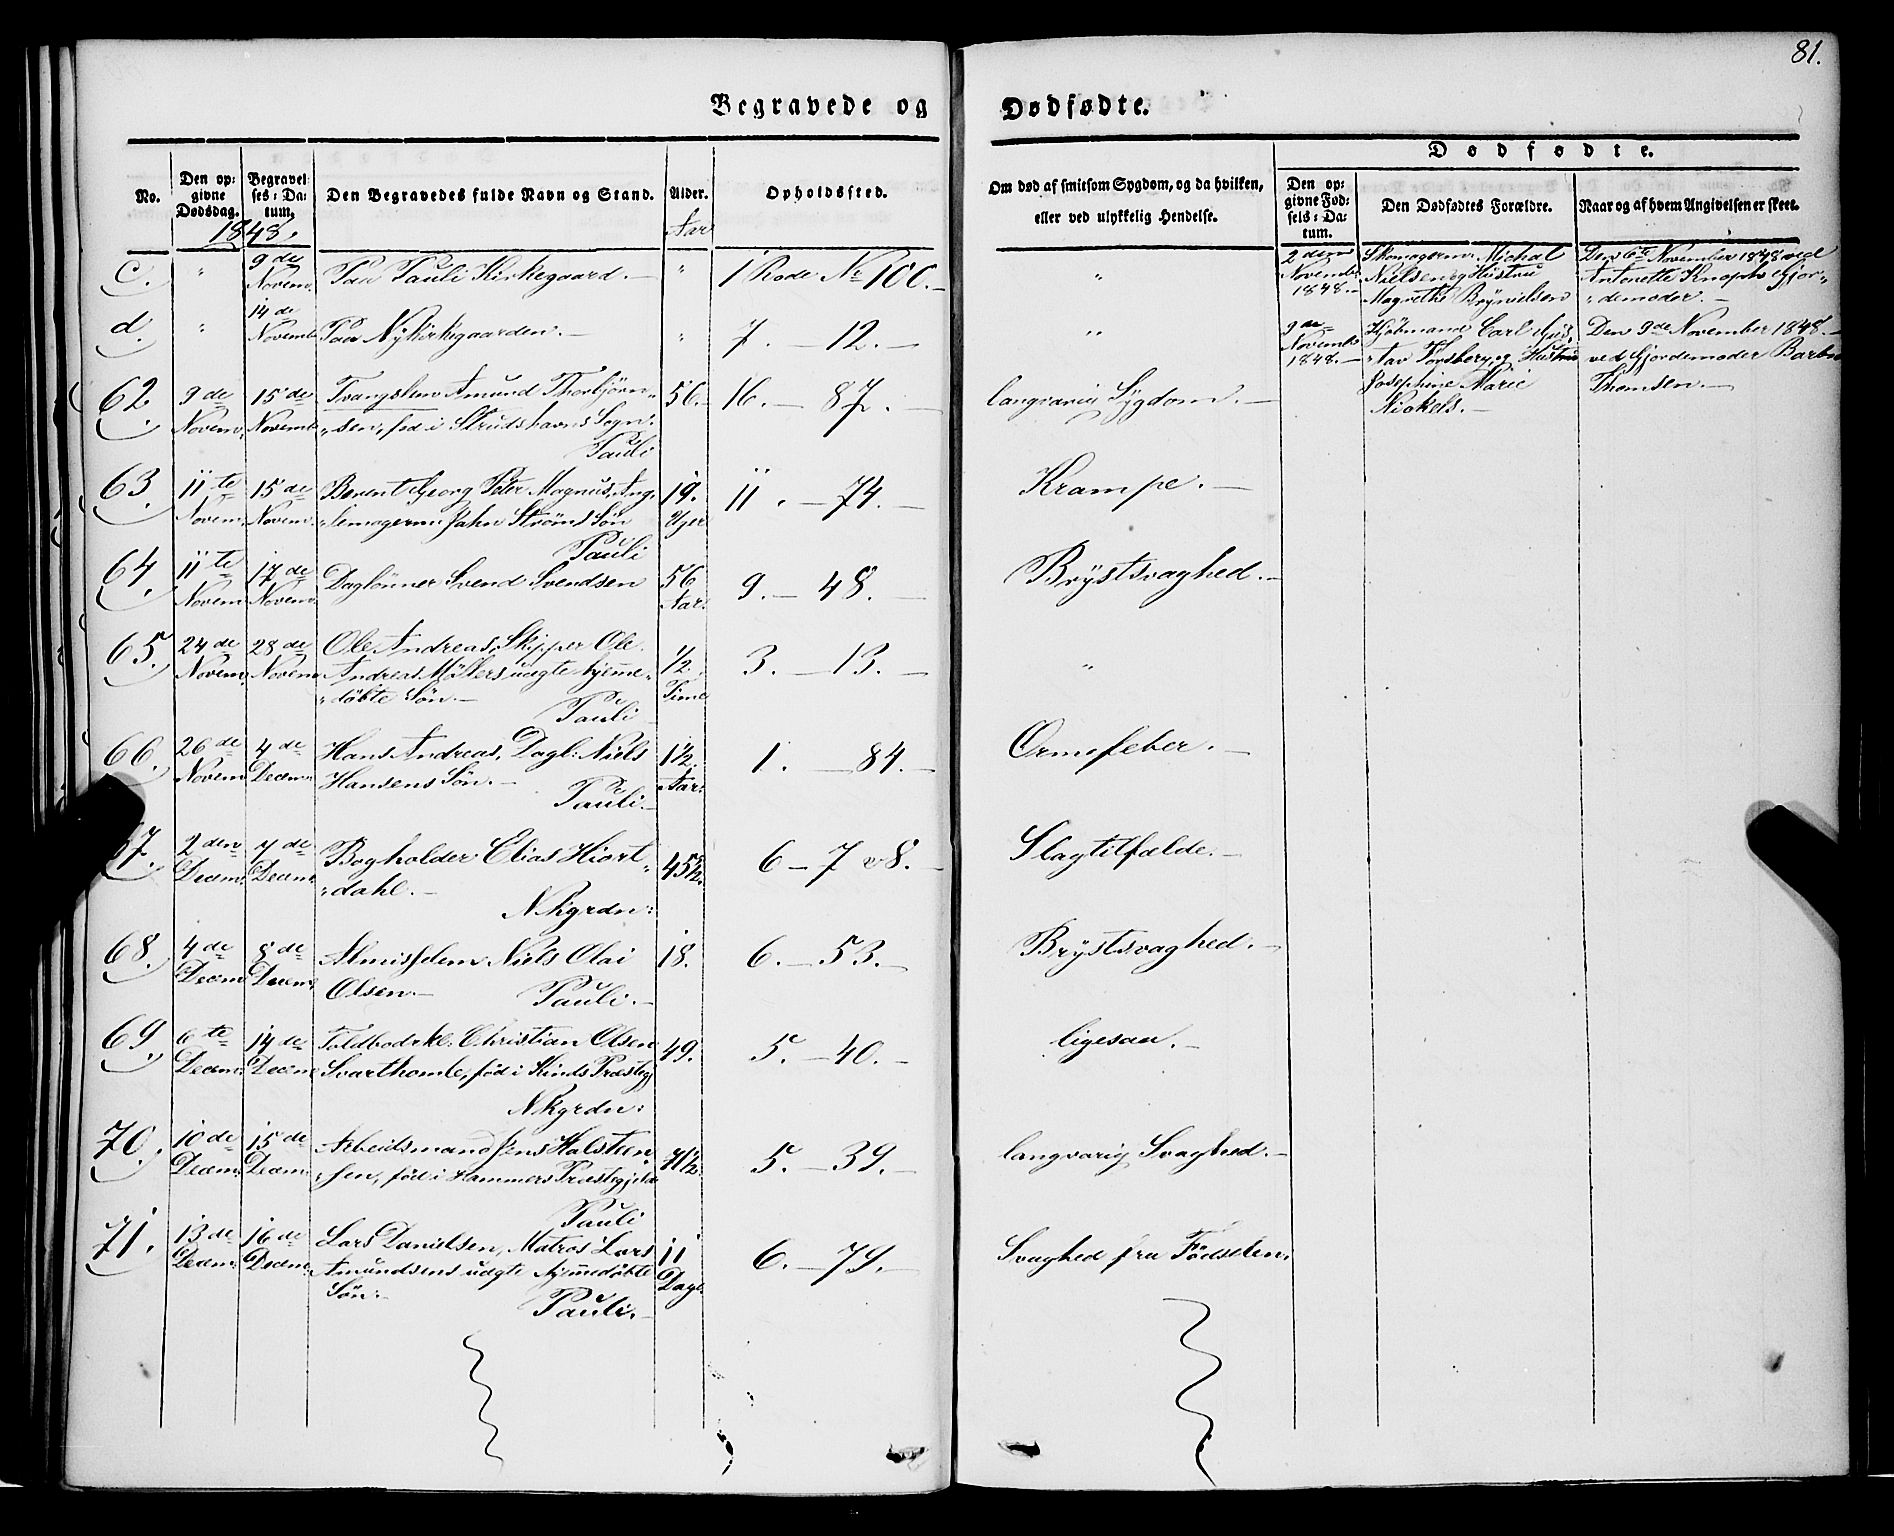 81.
Begravede og Dødfødte.
No.
Den opgivne Dødsdag.
Begravelses-Datum.
Den Begravedes fulde Navn og Stand.
Alder.
Opholdssted.
Om død af smitsom Sygdom, og da hvilken, eller ved ulykkelig Hendelse.
Dødfødte.
Den opgivne Fødsels-Datum.
Den Dødfødtes Forældre.
Naar og af hvem Angivelsen er skeet.
1848.
Aar
c. " 9de Novem. Paa Pauli Kirkegaard. — " 1 Rode No 100. —
" 2den Novembr 1848. — Skomagersv. Michael Nielsen og Hustru Magrethe Brynielsen
Den 6te November 1848 ved Antonette Knoph Gjordemoder. —
d. " 14de Novemb. Paa Nykirkegaarden. — " 7. — 12. —
" 9de Novemb 1848. — Kjøbmand Carl Gustav Forsberg og Hustru Josephine Marie Nickels. —
Den 9de November 1848. — ved Gjordemoder Barbra Thomsen. —
62. 9de Novem. 15de Novemb. Tvangslem Amund Thorbjørn-
sen, fød i Strudshavns Sogn. 56. — 16. — 87. — langvarig Sygdom. —
Pauli
63. 11te Novem. 15de Novem. Berent Georg Peter Magnus,
lemagersv. Jahn Strøms Søn 19. Uger 11. — 74. — Krampe. —
Pauli
64. 11te Novem 17de Novem. Daglönner Svend Svendsen 56 Aar. 9. — 48. — Brystsvaghed. —
65. 24de Novem. 28de Novem Ole Andreas, Skipper Ole
Andreas Møllers uægte hjemme-
døbte Søn. — 1/2. Time 3. — 13. — "
Pauli
66. 26de Novem 4de Decem. Hans Andreas, Dagl: Niels
Hansens Søn. — 1 1/2. Aar. 1. — 84. — Ormefeber. —
Pauli. —
67. 2den Decem. 7de Decem. Bogholder Elias Hiort-
dahl. — 45 1/2. 6 — 7 8. — Slagtilfælde. —
Nkgrdn:
68. 4de Decem 8de Decem. Almisselem Niels Olai
Olsen. — 18. 6. — 53. — Brystsvaghed. —
Pauli. —
69. 6te Decem. 14de Decem Toldbodrkl. Christian Olsen
Svarthomle, fød i Kinds Præstegj 49. 5. — 40. — ligesaa. —
Nkgrdn:
70. 10de Decem. 15de Decem. Arbeidsmand Jens Halsteen-
sen, fød i Hammers Præstegjeld 71 1/2. 5. — 39. — langvarig Svaghed. —
Pauli
71. 13de Decem. 16de Decem. Lars Danielsen, Matros Lars
Amundsens uægte hjemmedøbte
Søn. — 11 Dage 6. — 79. — Svaghed fra Fødselen.
Pauli. —